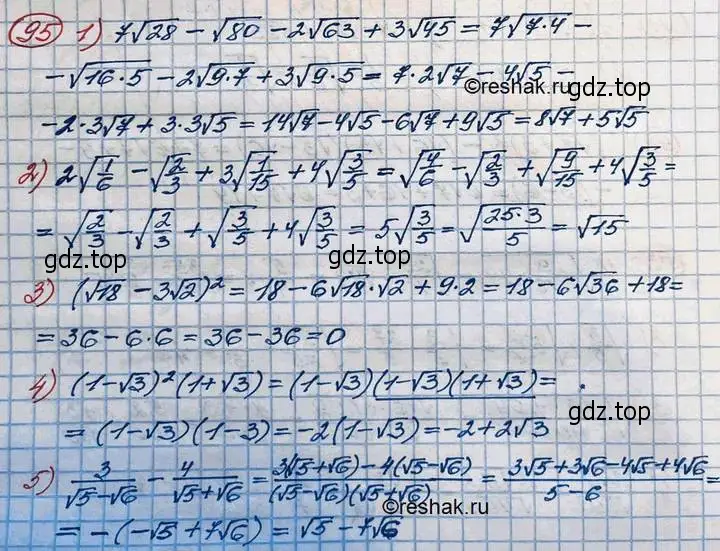 95 1) 7√28 - √80 - 2√63 + 3√45 = 7√(7·4) -
-√(16·5) - 2√(9·7) + 3√(9·5) = 7·2√7 - 4√5 -
©reshak.ru
gdz.top
-2·3√7 + 3·3√5 = 14√7 - 4√5 - 6√7 + 9√5 = 8√7 + 5√5
gdz.top
2) 2√(1/6) - √(2/3) + 3√(1/15) + 4√(3/5) = √(4/6) - √(2/3) + √(9/15) + 4√(3/5) =
= √(2/3) - √(2/3) + √(3/5) + 4√(3/5) = 5√(3/5) = √(25·3/5) = √15
gdz.top
gdz.top
3) (√18 - 3√2)² = 18 - 6√18·√2 + 9·2 = 18 - 6√36 + 18 =
= 36 - 6·6 = 36 - 36 = 0
4) (1-√3)²(1+√3) = (1-√3)(1-√3)(1+√3) =
gdz.top
= (1-√3)(1-3) = -2(1-√3) = -2+2√3
gdz.top
5) 3/(√5-√6) - 4/(√5+√6) = (3(√5+√6) - 4(√5-√6))/((√5-√6)(√5+√6)) = (3√5+3√6-4√5+4√6)/(5-6) =
©reshak.ru
= -(-√5+7√6) = √5 - 7√6